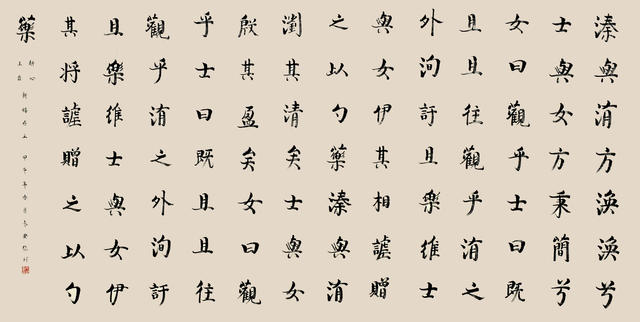 溱與洧方渙渙兮
士與女方秉簡兮
女曰觀乎士曰既
且且往觀乎洧之
外洵訏且樂維士
與女伊其相謔贈
之以勺藥溱與洧
瀏其清矣士與女
殷其盈矣女曰觀
乎士曰既且且往
觀乎洧之外洵訏
且樂維士與女伊
其將謔贈之以勺
藥
甲午年